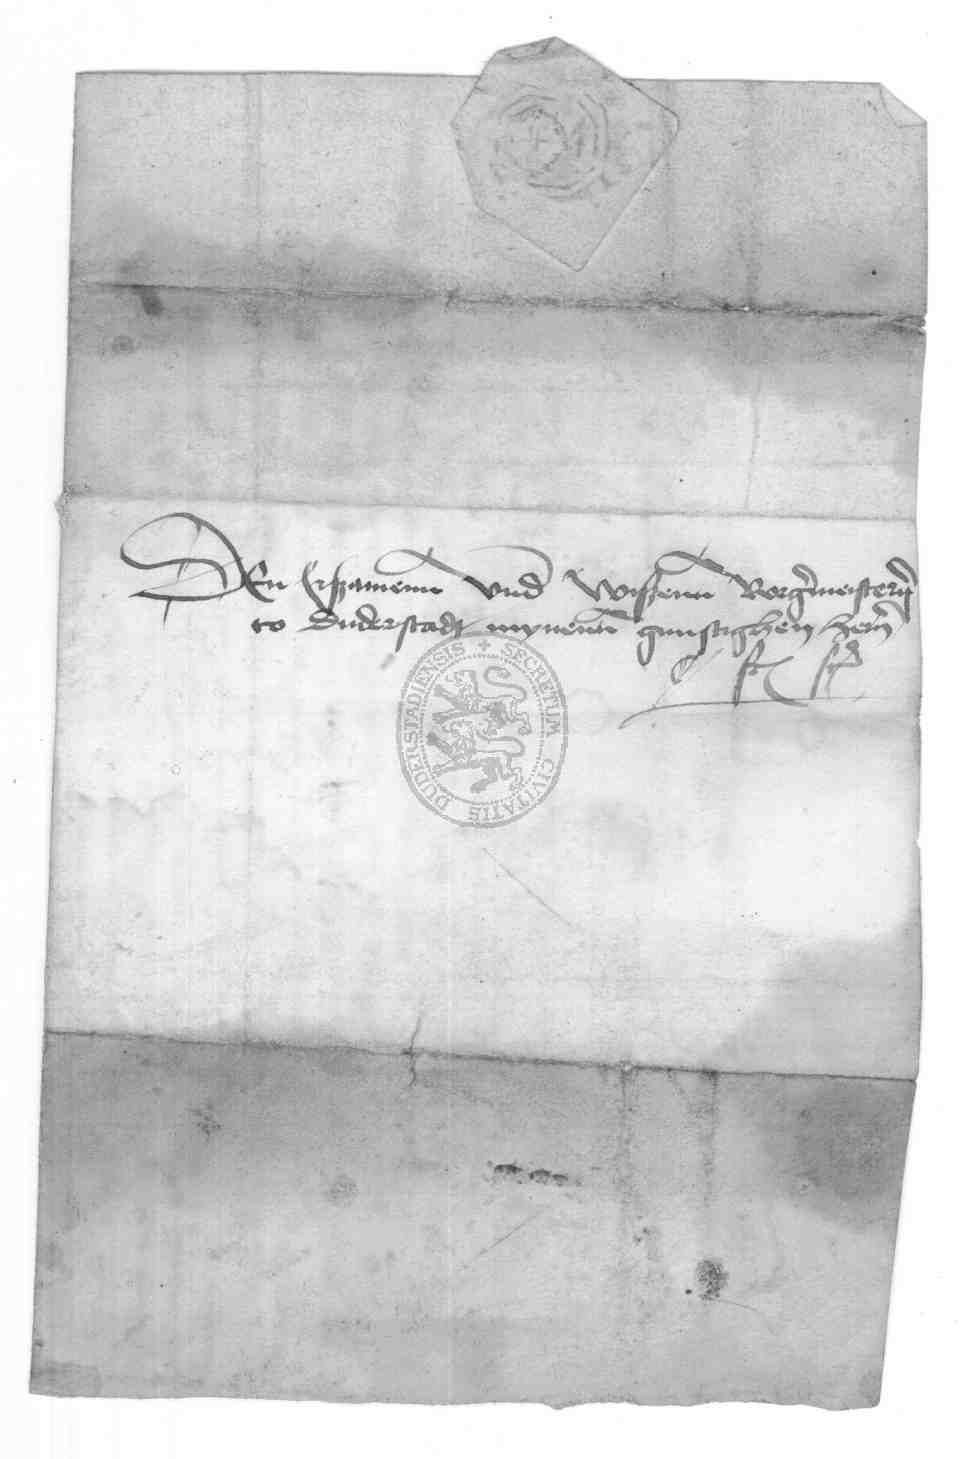 Den Erszamenn vnd Wiszenn Borgermeistern
to Duderstadt mynenn gunstighen hern
SECRETUM CIVITATIS DUDERSTADIENSIS +